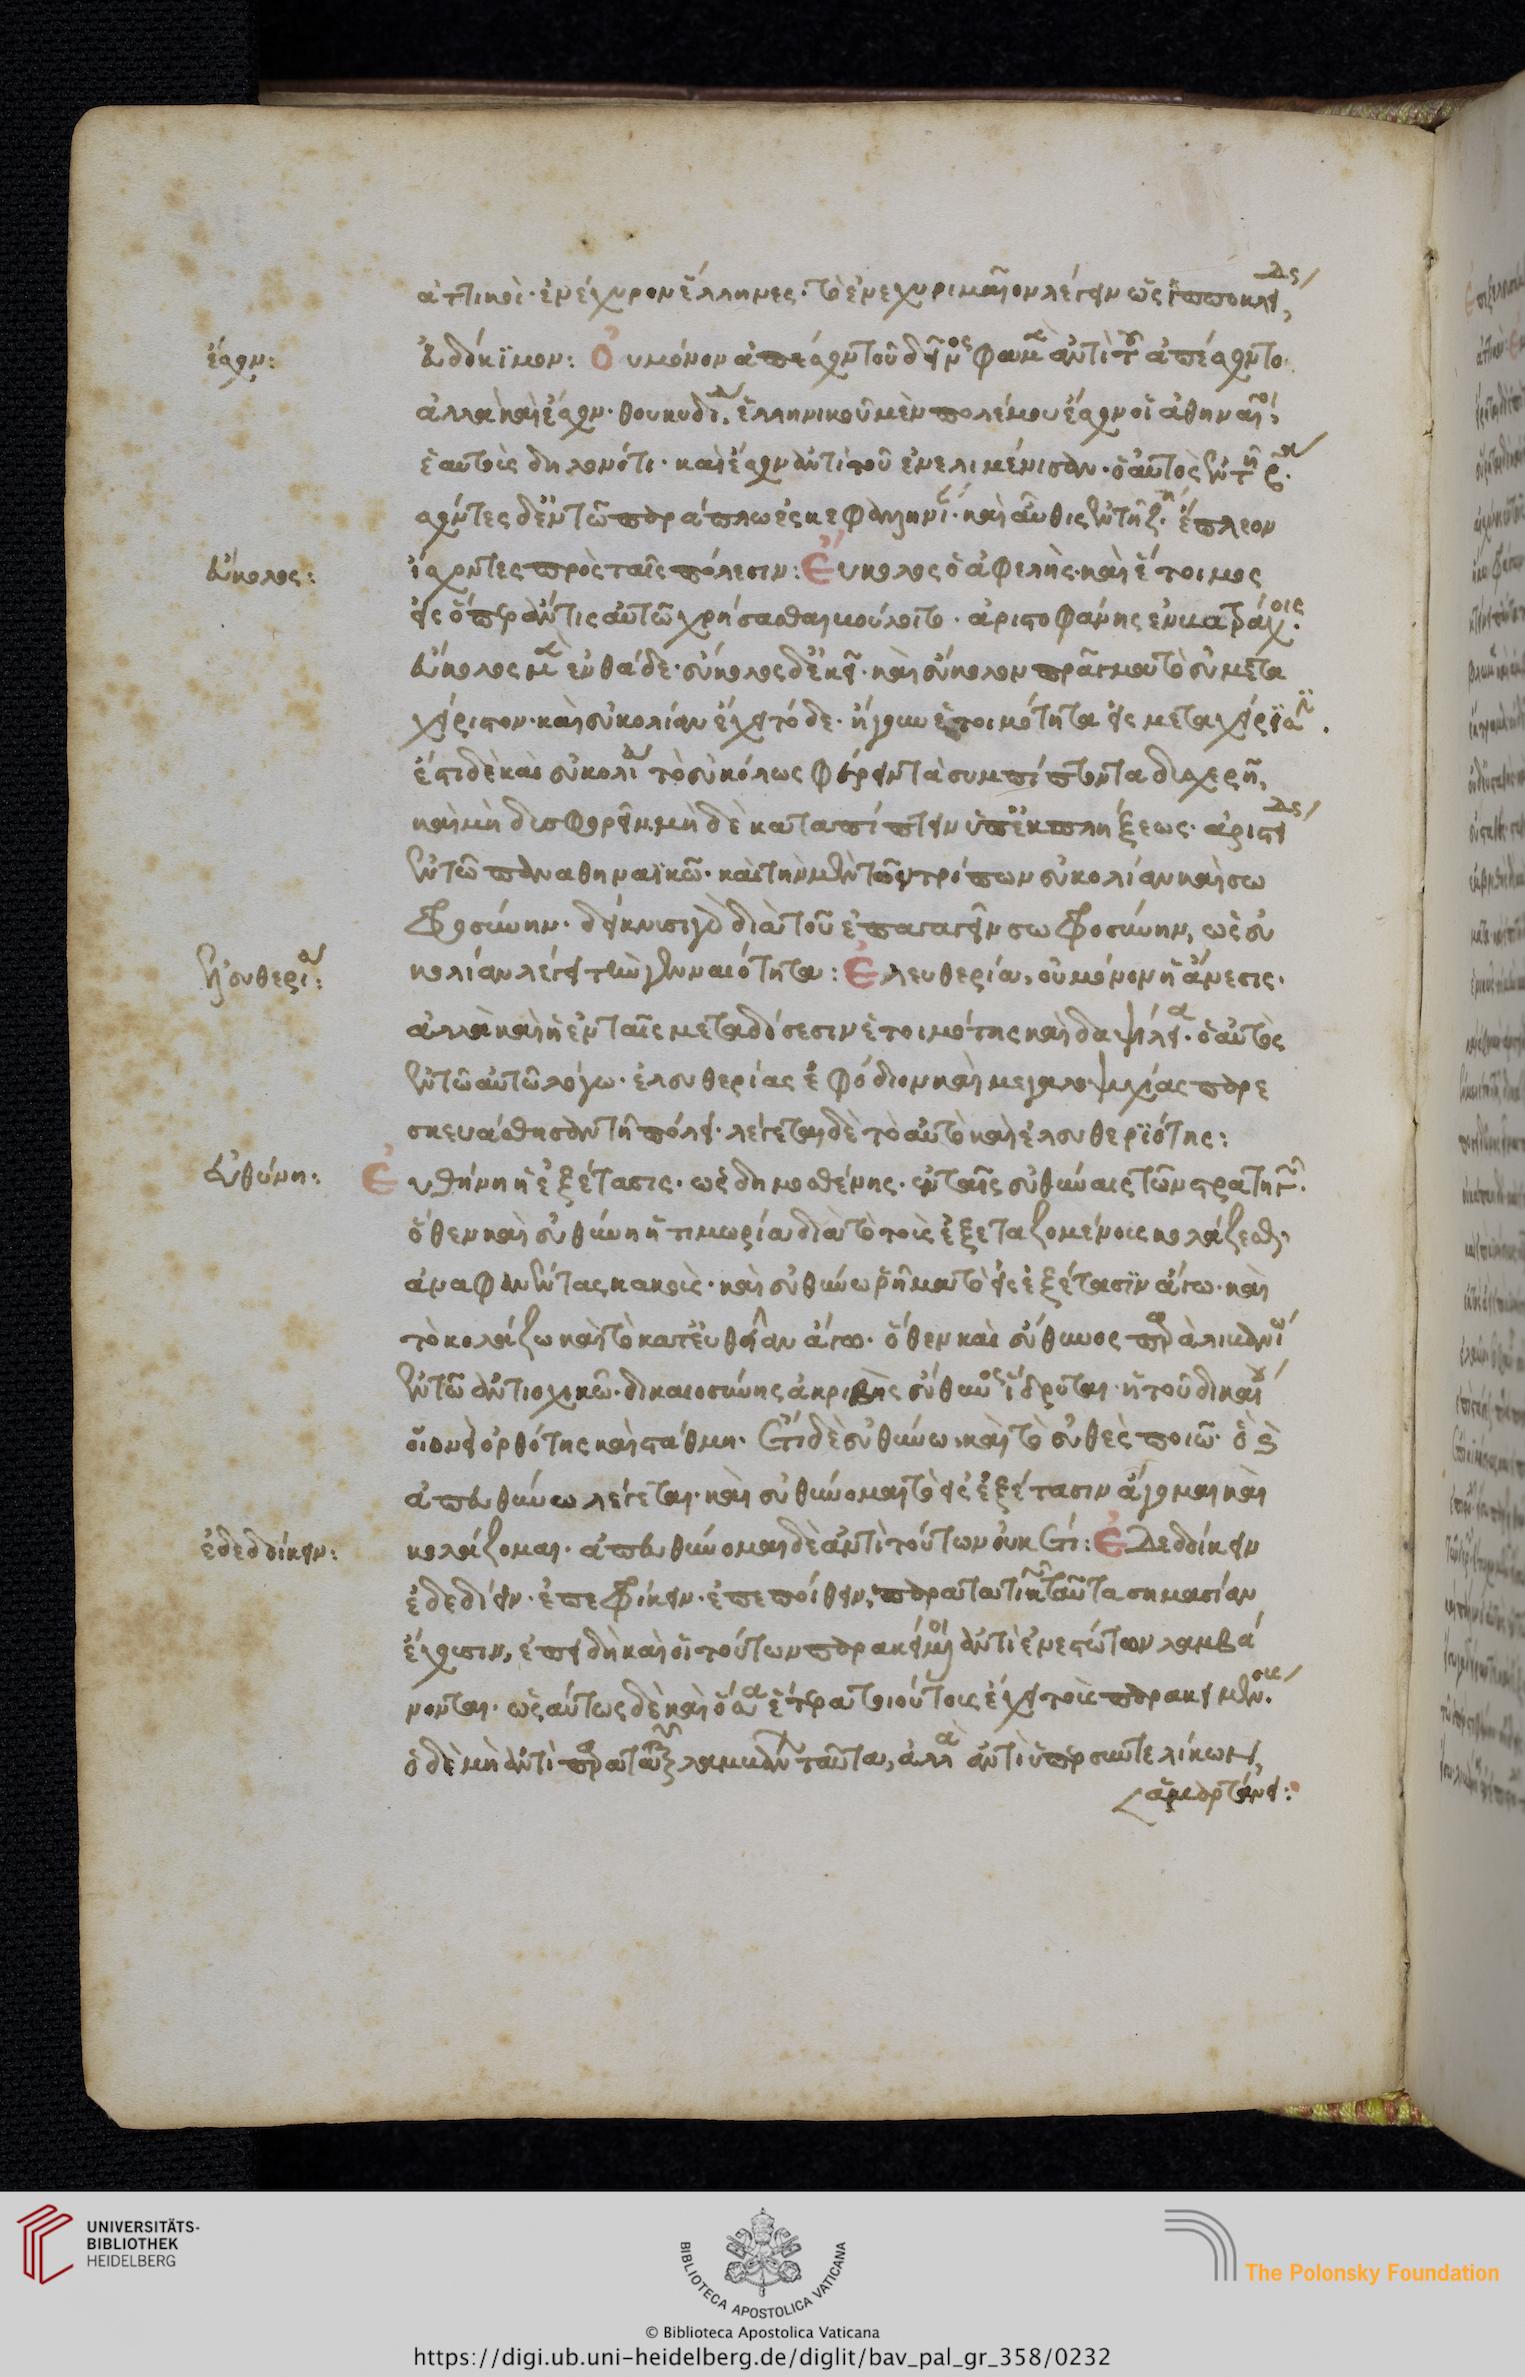 ἀττικοὶ· ἐνέχυρον ἕλληνες· τὸ ἐνεχυριμαῖον λέγειν ὡς
ἔσχον:
εὐδόκιμον: Οὐ μόνον ἀπέσχοντο ἀντὶ τοῦ ἀπέσχοντο·
ἀλλὰ καὶ ἔσχον· θουκυδί. ἑλληνικοῦ μὲν πολέμου ἔσχον οἱ ἀθηναῖοι,
ἑαυτοὺς δηλονότι· καὶ ἔσχον ἀντὶ τοῦ ἐνελιμένισαν· ὁ αὐτὸς ἐν τῆ
σχόντες δὲ ἐν τῶ παράπλω ἐς κεφαλληνί· καὶ αὖθις ἐν τῆ ζ· ἔπλεον
εὔκολος:
ἴσχοντες πρὸς ταῖς πόλεσιν: Εὔκολος ὁ ἀφελὴς· καὶ ἕτοιμος
εἰς ὅπερ ἄν τις αὐτῶ χρήσασθαι βούλοιτο· ἀριστοφάνης ἐν βατράχοις·
εὔκολος μὲν ἐνθάδε· εὔκολος δὲ ἐκεῖ· καὶ εὔκολον πρᾶγμα τὸ εὐμετα
χείριστον· καὶ εὐκολίαν ἔχει τόδε· ἤγουν ἑτοιμότητα εἰς μεταχείρισιν.
ἔστι δὲ καὶ εὐκολία τὸ εὐκόλως φέρειν τὰ συμπίπτοντα δυσχερῆ,
καὶ μὴ δυσφορεῖν, μὴ δὲ καταπίπτειν ὑπ' ἐκπλήξεως· ἀριστείδης
ἐν τῶ παναθηναϊκῶ· καὶ τὴν μὲν τῶν τρόπων εὐκολίαν καὶ σω
φροσύνην· δείκνυσι γὰρ διὰ τοῦ ἐπαγαγεῖν σωφροσύνην, ὡς εὐ
ἐλευθερία:
κολίαν λέγει τὴν γενναιότητα: Ἐλευθερία, οὐ μόνον ἡ ἄνεσις·
ἀλλὰ καὶ ἡ ἐν ταῖς μεταδόσεσιν ἑτοιμότης καὶ δαψίλεια· ὁ αὐτὸς
ἐν τῶ αὐτῶ λόγω· ἐλευθερίας ἐφόδιον καὶ μεγαλοψυχίας παρε
σκευάσθησαν τῆ πόλει· λέγεται δὲ τὸ αὐτὸ καὶ ἐλευθεριότης:
εὐθύνη:
Εὐθύνη ἡ ἐξέτασις· ὡς δημοσθένης· ἐν ταῖς εὐθύναις τῶν στρατηγῶν·
ὅθεν καὶ εὐθύνη ἡ τιμωρία διὰ τὸ τοὺς ἐξεταζομένους κολάζεσθαι
ἀναφανέντας κακοὺς· καὶ εὐθύνω ῥῆμα τὸ εἰς ἐξέτασιν ἄγω· καὶ
τὸ κολάζω καὶ τὸ κατ' εὐθεῖαν ἄγω· ὅθεν καὶ εὔθυνος παρὰ λιβανίω
ἐν τῶ ἀντιοχικῶ· δικαιοσύνης ἀκριβὴς εὔθυνος ἵδρυται· ἡ τοῦ δικαίου
οἱονεὶ ὀρθότης καὶ στάθμη· ἔστι δὲ εὐθύνω καὶ τὸ εὐθὲς ποιῶ· ὃ καὶ
ἀπευθύνω λέγεται· καὶ εὐθύνομαι τὸ εἰς ἐξέτασιν ἄγομαι καὶ
ἐδεδοίκειν:
κολάζομαι· ἀπευθύνομαι δὲ ἀντὶ τούτων οὐκ ἔστι: Ἐδεδοίκειν
ἐδεδίειν· ἐπεφρίκειν· ἐπεποίθειν, παρατατικῶν ταῦτα σημασίαν
ἔχουσιν, ἐπειδὴ καὶ οἱ τούτων παρακείμενοι ἀντὶ ἐνεστώτων λαμβά
νονται· ὡσαύτως δὲ καὶ ὅσα ἕτερα τοιούτους ἔχει τοὺς παρακειμένους·
ὁ δὲ μὴ ἀντὶ παρατατικῶν λαμβάνων ταῦτα, ἀλλὰ ἀντὶ ὑπερσυντελίκων,
ἁμαρτάνει:
UNIVERSITÄTS-
BIBLIOTHEK
HEIDELBERG
BIBLIOTECA APOSTOLICA VATICANA
The Polonsky Foundation
© Biblioteca Apostolica Vaticana
https://digi.ub.uni-heidelberg.de/diglit/bav_pal_gr_358/0232